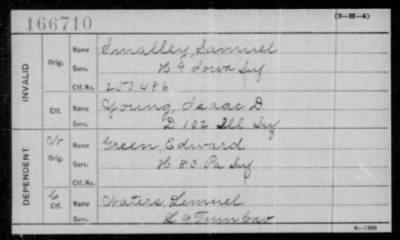 166710
(3-H-4)
INVALID
Orig.
Name Smalley, Samuel
Serv. H 9 Iowa Inf
Ctf. No. 257486
Ctf.
Name Young, Isaac D.
Serv. D 102 Ill Inf
DEPENDENT
W
Orig.
Name Green, Edward
Serv. H 83 Pa Inf
Ctf. No.
C
Ctf.
Name Waters, Lemuel
Serv. L 9 Tenn Cav